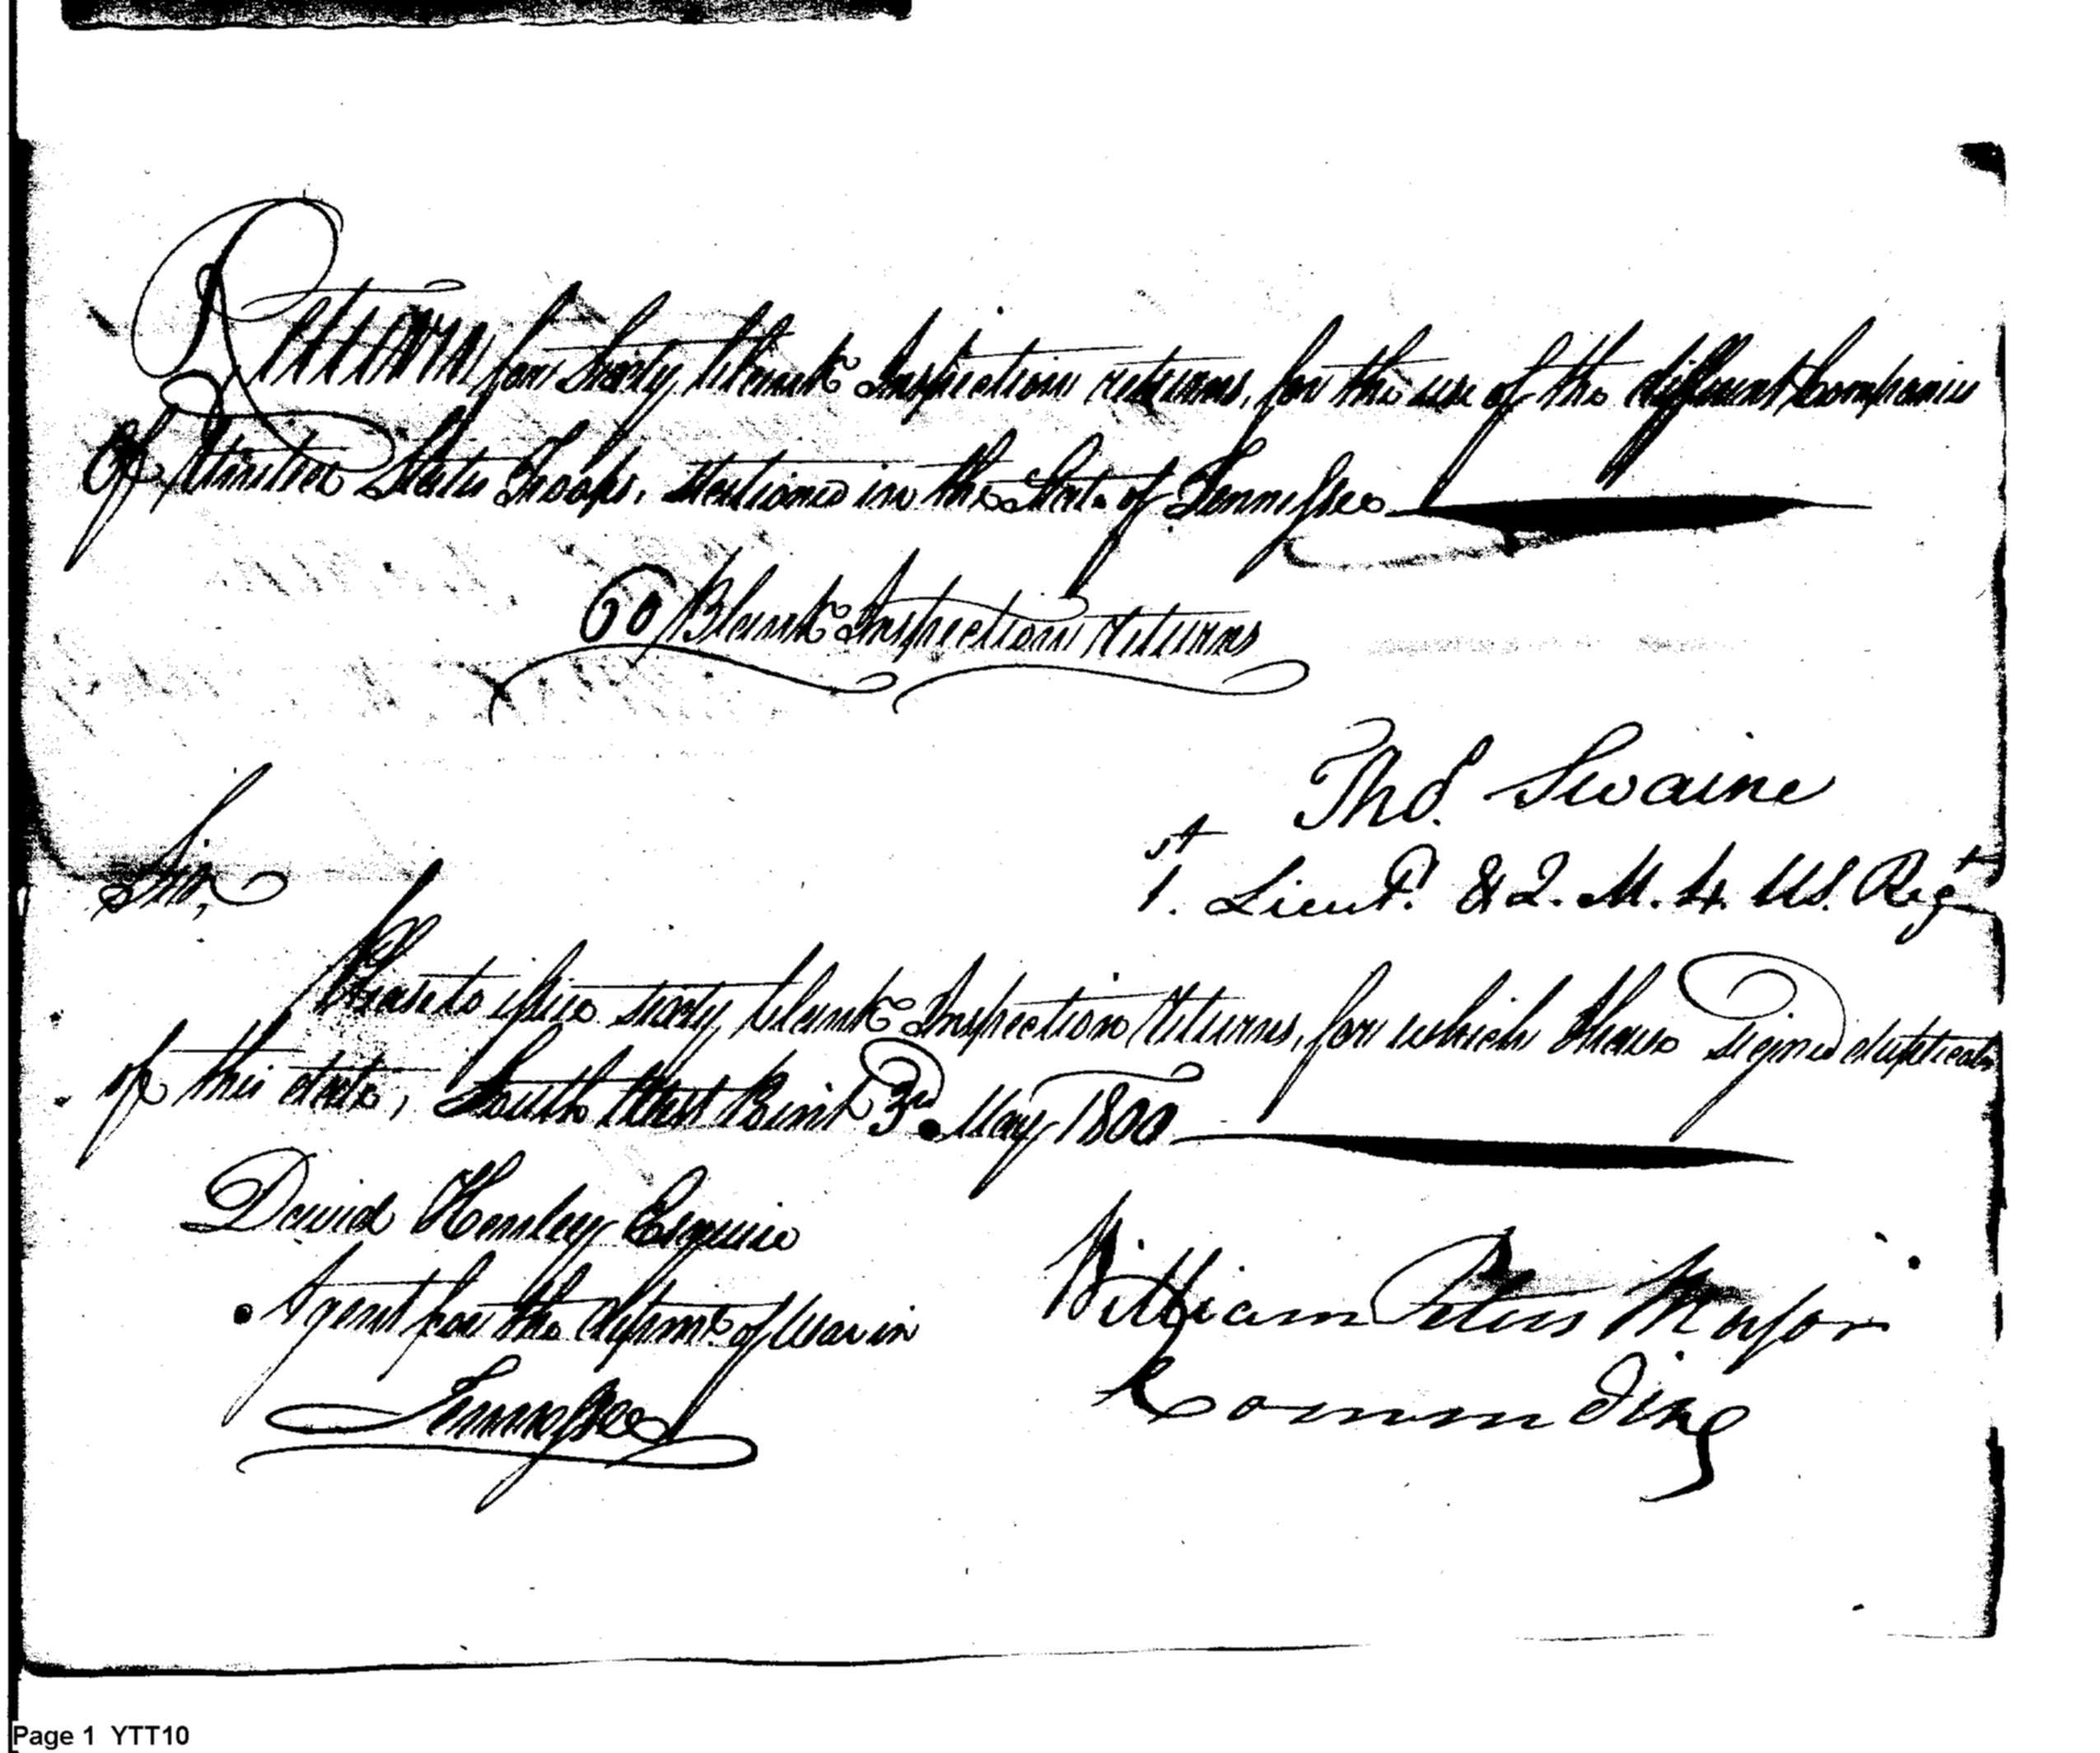 Return for Sixty blank Inspection returns, for the use of the different Companies
Of United States Troops, stationed in the State of Tennessee
60 Blank Inspection returns
Thos. Swaine
1st. Lieut. & Q. M. 4 US. Regt
Sir,
Please to issue sixty blank Inspection Returns, for which I have signed duplicates
of this date, South West Point 3rd. May 1800
David Henley Esquire
Agent for the departmt. of War in
Tennessee
William Peters Major
Comm ding
Page 1 YTT10